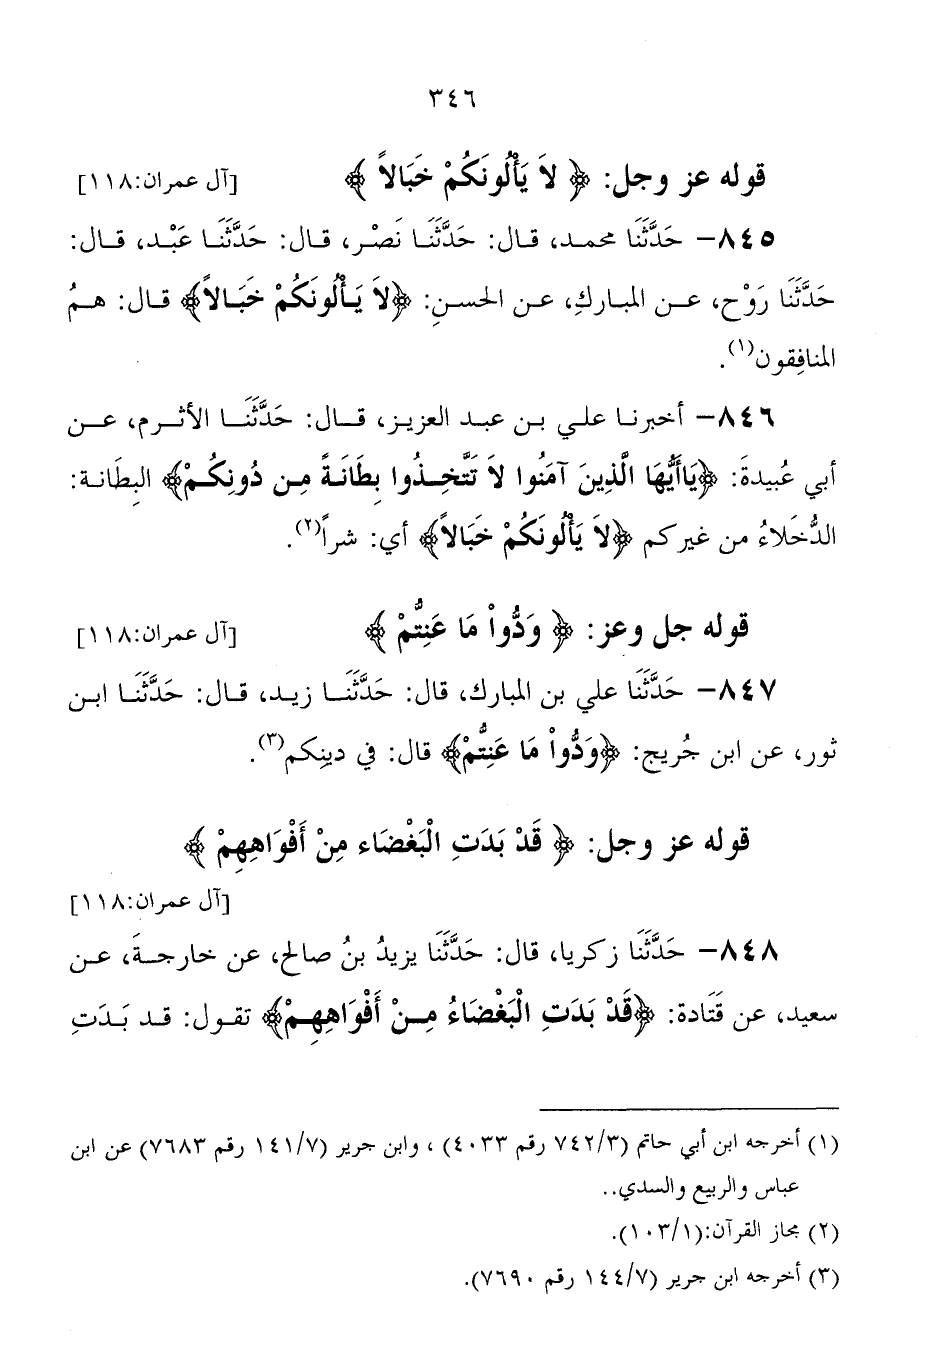 ٣٤٦
قوله عز وجل: ﴿ لاَ يَأْلُونَكُمْ خَبَالاً ﴾ [آل عمران:١١٨]
٨٤٥– حَدَّثَنَا محمد، قال: حَدَّثَنَا نَصْر، قال: حَدَّثَنَا عَبْد، قال:
حَدَّثَنَا رَوْح، عن المبارك، عن الحسنِ: ﴿لاَ يَأْلُونَكُمْ خَبَالاً﴾ قال: همُ
المنافِقون(١).
٨٤٦– أخبرنا علي بن عبد العزيز، قال: حَدَّثَنَا الأثرم، عن
أبي عُبيدةَ: ﴿يَاأَيُّهَا الَّذِينَ آمَنُوا لاَ تَتَّخِذُوا بِطَانَةً مِن دُونِكُمْ﴾ البِطَانة:
الدُّخَلاءُ من غيركم ﴿لاَ يَأْلُونَكُمْ خَبَالاً﴾ أي: شراً(٢).
قوله جل وعز: ﴿ وَدُّواْ مَا عَنِتُّمْ ﴾ [آل عمران:١١٨]
٨٤٧– حَدَّثَنَا علي بن المبارك، قال: حَدَّثَنَا زيد، قال: حَدَّثَنَا ابن
ثور، عن ابن جُريج: ﴿وَدُّواْ مَا عَنِتُّمْ﴾ قال: في دينِكم(٣).
قوله عز وجل: ﴿ قَدْ بَدَتِ الْبَغْضَاء مِنْ أَفْوَاهِهِمْ ﴾
[آل عمران:١١٨]
٨٤٨– حَدَّثَنَا زكريا، قال: حَدَّثَنَا يزيدُ بنُ صالح، عن خارجةَ، عن
سعيد، عن قَتَادة: ﴿قَدْ بَدَتِ الْبَغْضَاءُ مِنْ أَفْوَاهِهِمْ﴾ تقول: قد بَدَتِ
(١) أخرجه ابن أبي حاتم (٧٤٢/٣ رقم ٤٠٣٣) ، وابن جرير (١٤١/٧ رقم ٧٦٨٣) عن ابن
عباس والربيع والسدي..
(٢) مجاز القرآن:(١٠٣/١).
(٣) أخرجه ابن جرير (١٤٤/٧ رقم ٧٦٩٠).